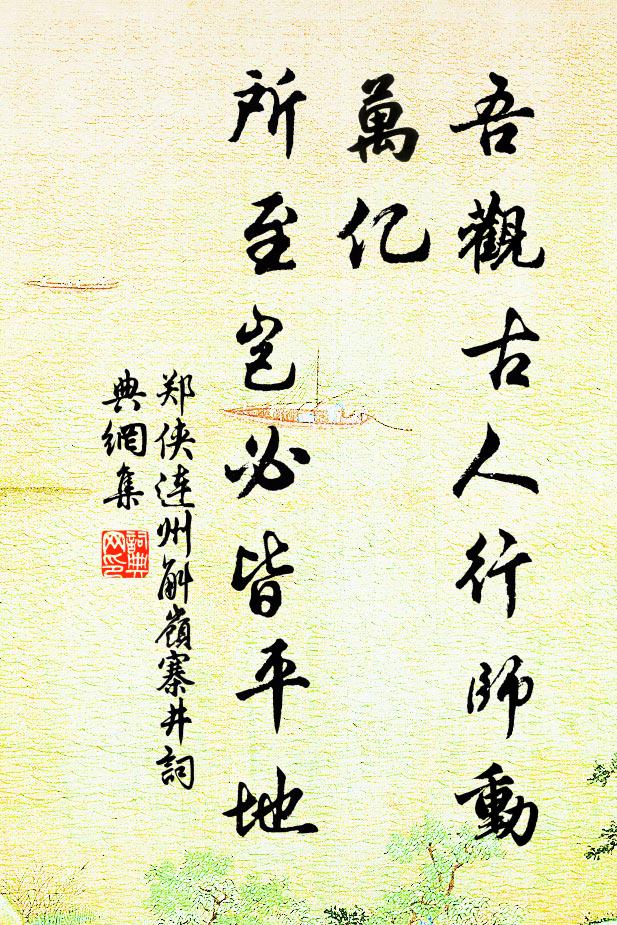 吾觀古人行師動
萬亿
所至岂必皆平地
郑侠连州斛嶺寨井詞
典網集
詞典
网印